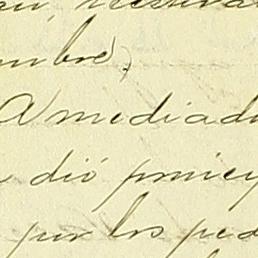 mbre,
A mediad
dió princi
por los ped